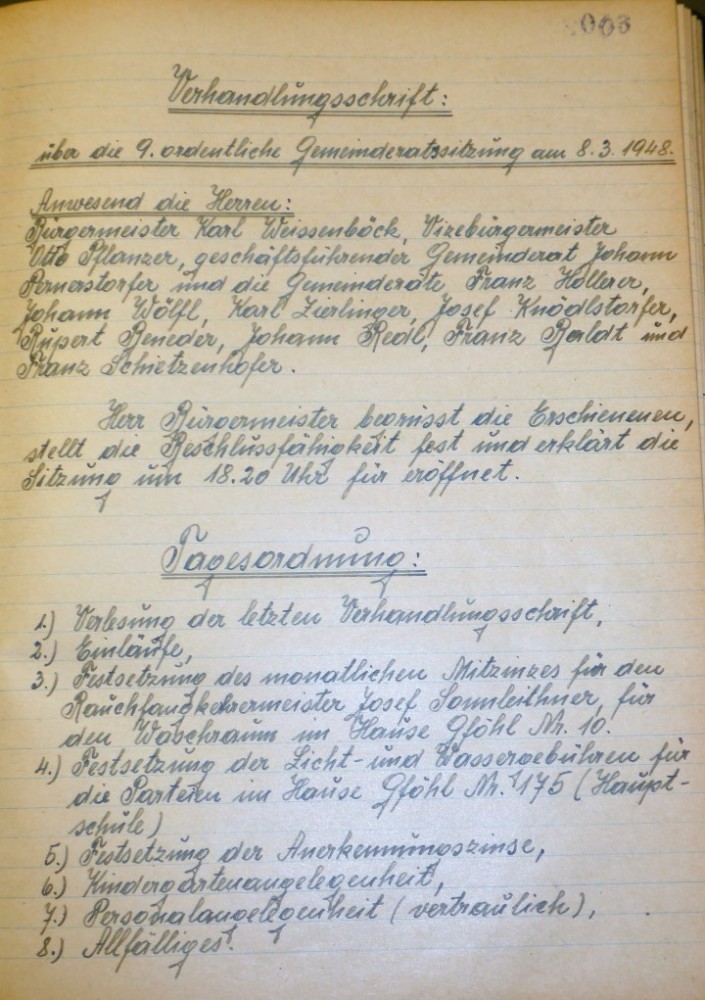 003
Verhandlungsschrift:
über die 9. ordentliche Gemeinderatssitzung am 8.3.1948.
Anwesend die Herren:
Bürgermeister Karl Weissenböck, Vizebürgermeister
Otto Pflanzer, geschäftsführender Gemeinderat Johann
Pernerstorfer und die Gemeinderäte Franz Hollerer,
Johann Wölfl, Karl Zierlinger, Josef Knödlstorfer,
Rupert Beneder, Johann Redl, Franz Raldt und
Franz Schietzenhofer.
Herr Bürgermeister begrüsst die Erschienenen,
stellt die Beschlussfähigkeit fest und erklärt die
Sitzung um 18.20 Uhr für eröffnet.
Tagesordnung:
1.) Verlesung der letzten Verhandlungsschrift,
2.) Einläufe,
3.) Festsetzung des monatlichen Mitzinzes für den
Rauchfangkehrermeister Josef Sonnleithner, für
den Waschraum im Hause Gföhl Nr. 10.
4.) Festsetzung der Licht- und Wassergebühren für
die Parteien im Hause Gföhl Nr. 175 (Haupt-
schule)
5.) Festsetzung der Anerkennungszinse,
6.) Kindergartenangelegenheit,
7.) Personalangelegenheit (vertraulich),
8.) Allfälliges.